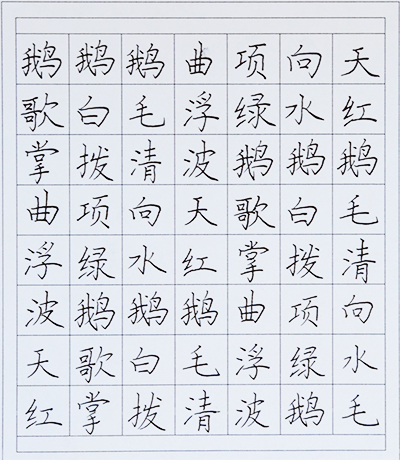 鹅鹅鹅曲项向天
歌白毛浮绿水红
掌拨清波鹅鹅鹅
曲项向天歌白毛
浮绿水红掌拨清
波鹅鹅鹅曲项向
天歌白毛浮绿水
红掌拨清波鹅毛